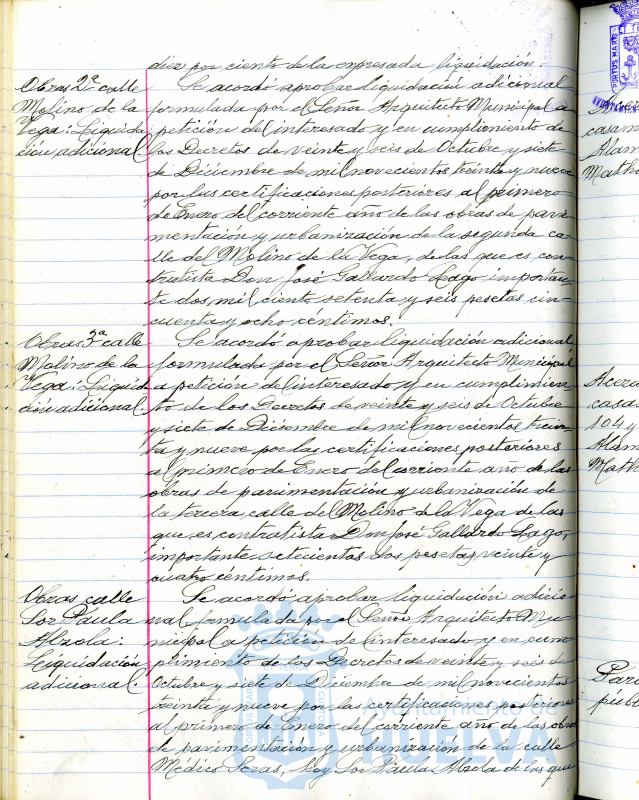 diez por ciento de la expresada liquidación.
Obras 2ª calle
Molino de la
Vega: Liquida
ción adicional
Se acordó aprobar liquidación adicional
formulada por el Señor Arquitecto Municipal a
petición del interesado y en cumplimiento de
los Decretos de veinte y seis de Octubre y siete
de Diciembre de mil novecientos treinta y nueve
por las certificaciones posteriores al primero
de Enero del corriente año de las obras de pavi-
mentación y urbanización de la segunda ca-
lle del Molino de la Vega, de las que es con-
tratista Don José Gallardo Lago, importan-
te dos mil ciento setenta y seis pesetas cin-
cuenta y ocho céntimos.
Obras 3ª calle
Molino de la
Vega: Liquid
ción adicional
Se acordó aprobar liquidación adicional
formulada por el Señor Arquitecto Municipal
a petición del interesado y en cumplimien-
to de los Decretos de veinte y seis de Octubre
y siete de Diciembre de mil novecientos trein-
ta y nueve por las certificaciones posteriores
al primero de Enero del corriente año de las
obras de pavimentación y urbanización de
la tercera calle del Molino de la Vega de las
que es contratista Don José Gallardo Lago,
importante setecientas dos pesetas, veinte y
cuatro céntimos.
Obras calle
Sor Paula
Alzola:
Liquidación
adicional.
Se acordó aprobar liquidación adicio-
nal formulada por el Señor Arquitecto Mu-
nicipal a petición del interesado y en cum-
plimiento de los Decretos de veinte y seis de
Octubre y siete de Diciembre de mil novecientos
treinta y nueve por las certificaciones posteriores
al primero de Enero del corriente año de las obras
de pavimentación y urbanización de la calle
Médico Seras, hoy Sor Paula Alzola de las que
Ayuntamiento de
HUELVA
PORTUS MARIS
casa
Alam
Math
Acera
casa
104 y
Alam
Math
Para
públ